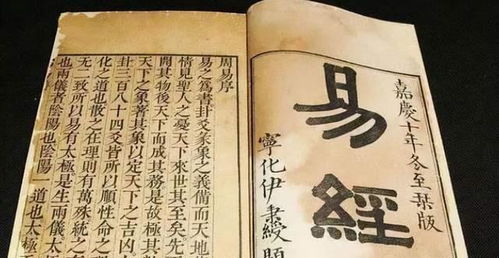 嘉慶十年冬至栞版
易經
寧化伊秉綬題
周易序
易之爲書卦爻彖象之義備而天地
情見聖人之憂天下來世其至矣先
開其物後天下而成其務是故極其
天下之象著其象以定天下之吉凶
卦三百八十四爻皆所以順性命之
化之道也散之在理則有萬殊統之
无二致所以易有太極是生兩儀
也兩儀者陰陽也陰陽一道也太極